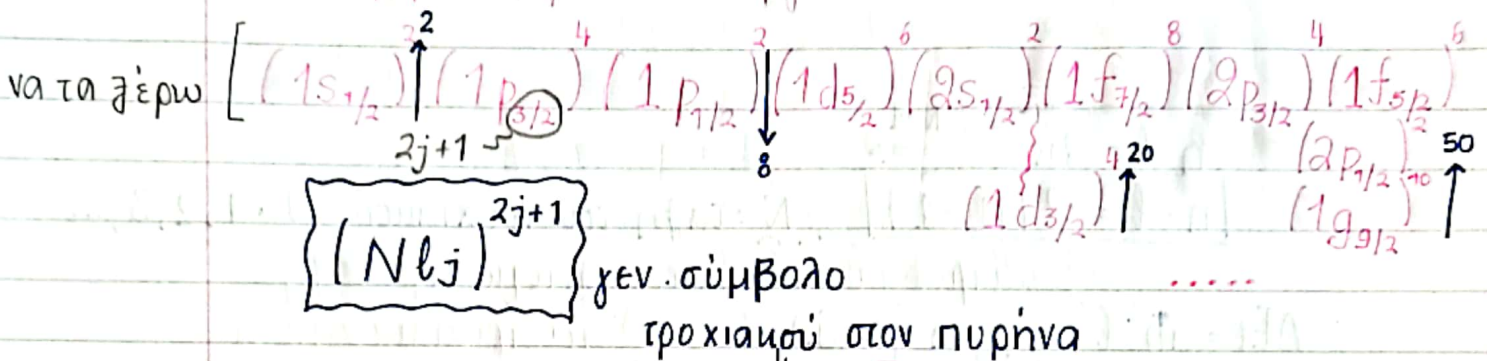 να τα ξέρω [ (1s₁/₂)² ↑2 (1p₃/₂)⁴ (1p₁/₂)² ↓8 (1d₅/₂)⁶ (2s₁/₂)² (1f₇/₂)⁸ (2p₃/₂)⁴ (1f₅/₂)⁶
2j+1
(1d₃/₂)⁴ ↑20
(2p₁/₂)²
(1g₉/₂)¹⁰ ↑50
(Nlj)²ʲ⁺¹ γεν. σύμβολο
.....
τροχιακού στον πυρήνα